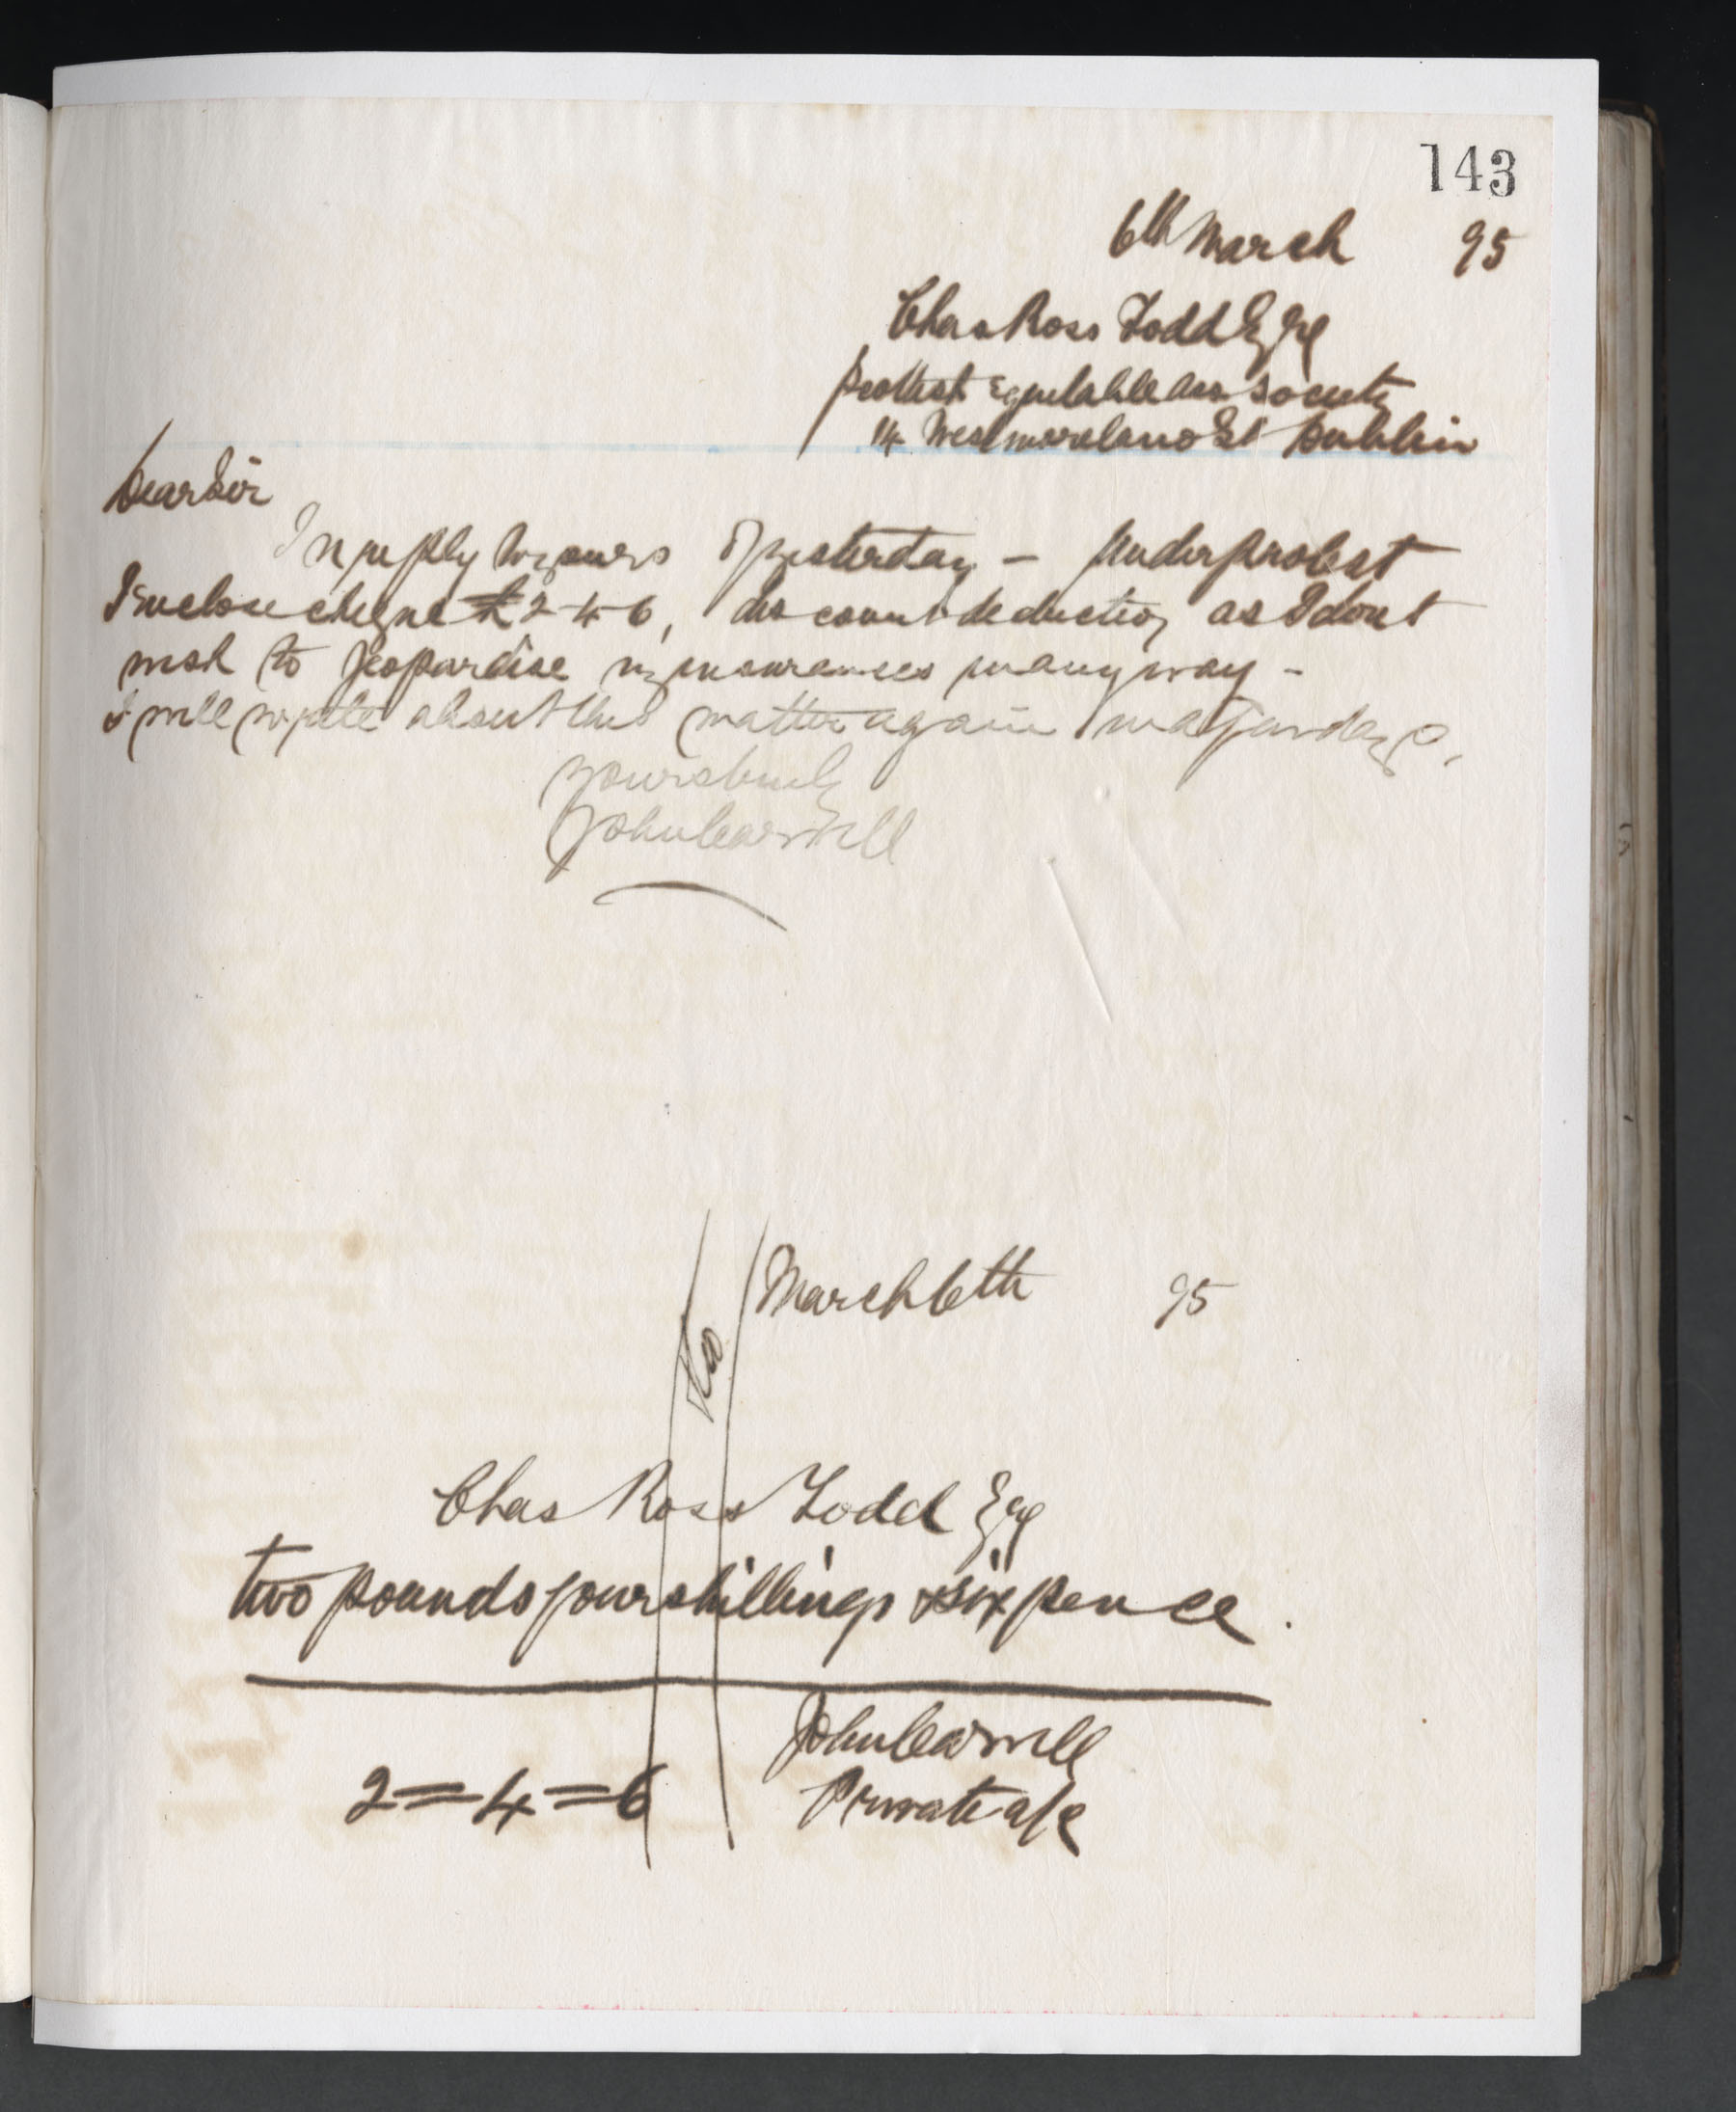 143
6th March 95
Chas Ross Todd Esqe
Scottish Equitable Ass Society
14 Westmoreland St Dublin
Dear Sir
In reply to yours of yesterday – Under protest
I enclose cheque £2-4-6, discount deduction as I dont
wish to jeopardise my insurances in any way –
I will write about this matter again in a few days.
yours truly
John Carvill
March 6th 95
& Co
Chas Ross Todd Esqe
two pounds four shillings & six pence.
John Carvill
2=4=6 Private a/c